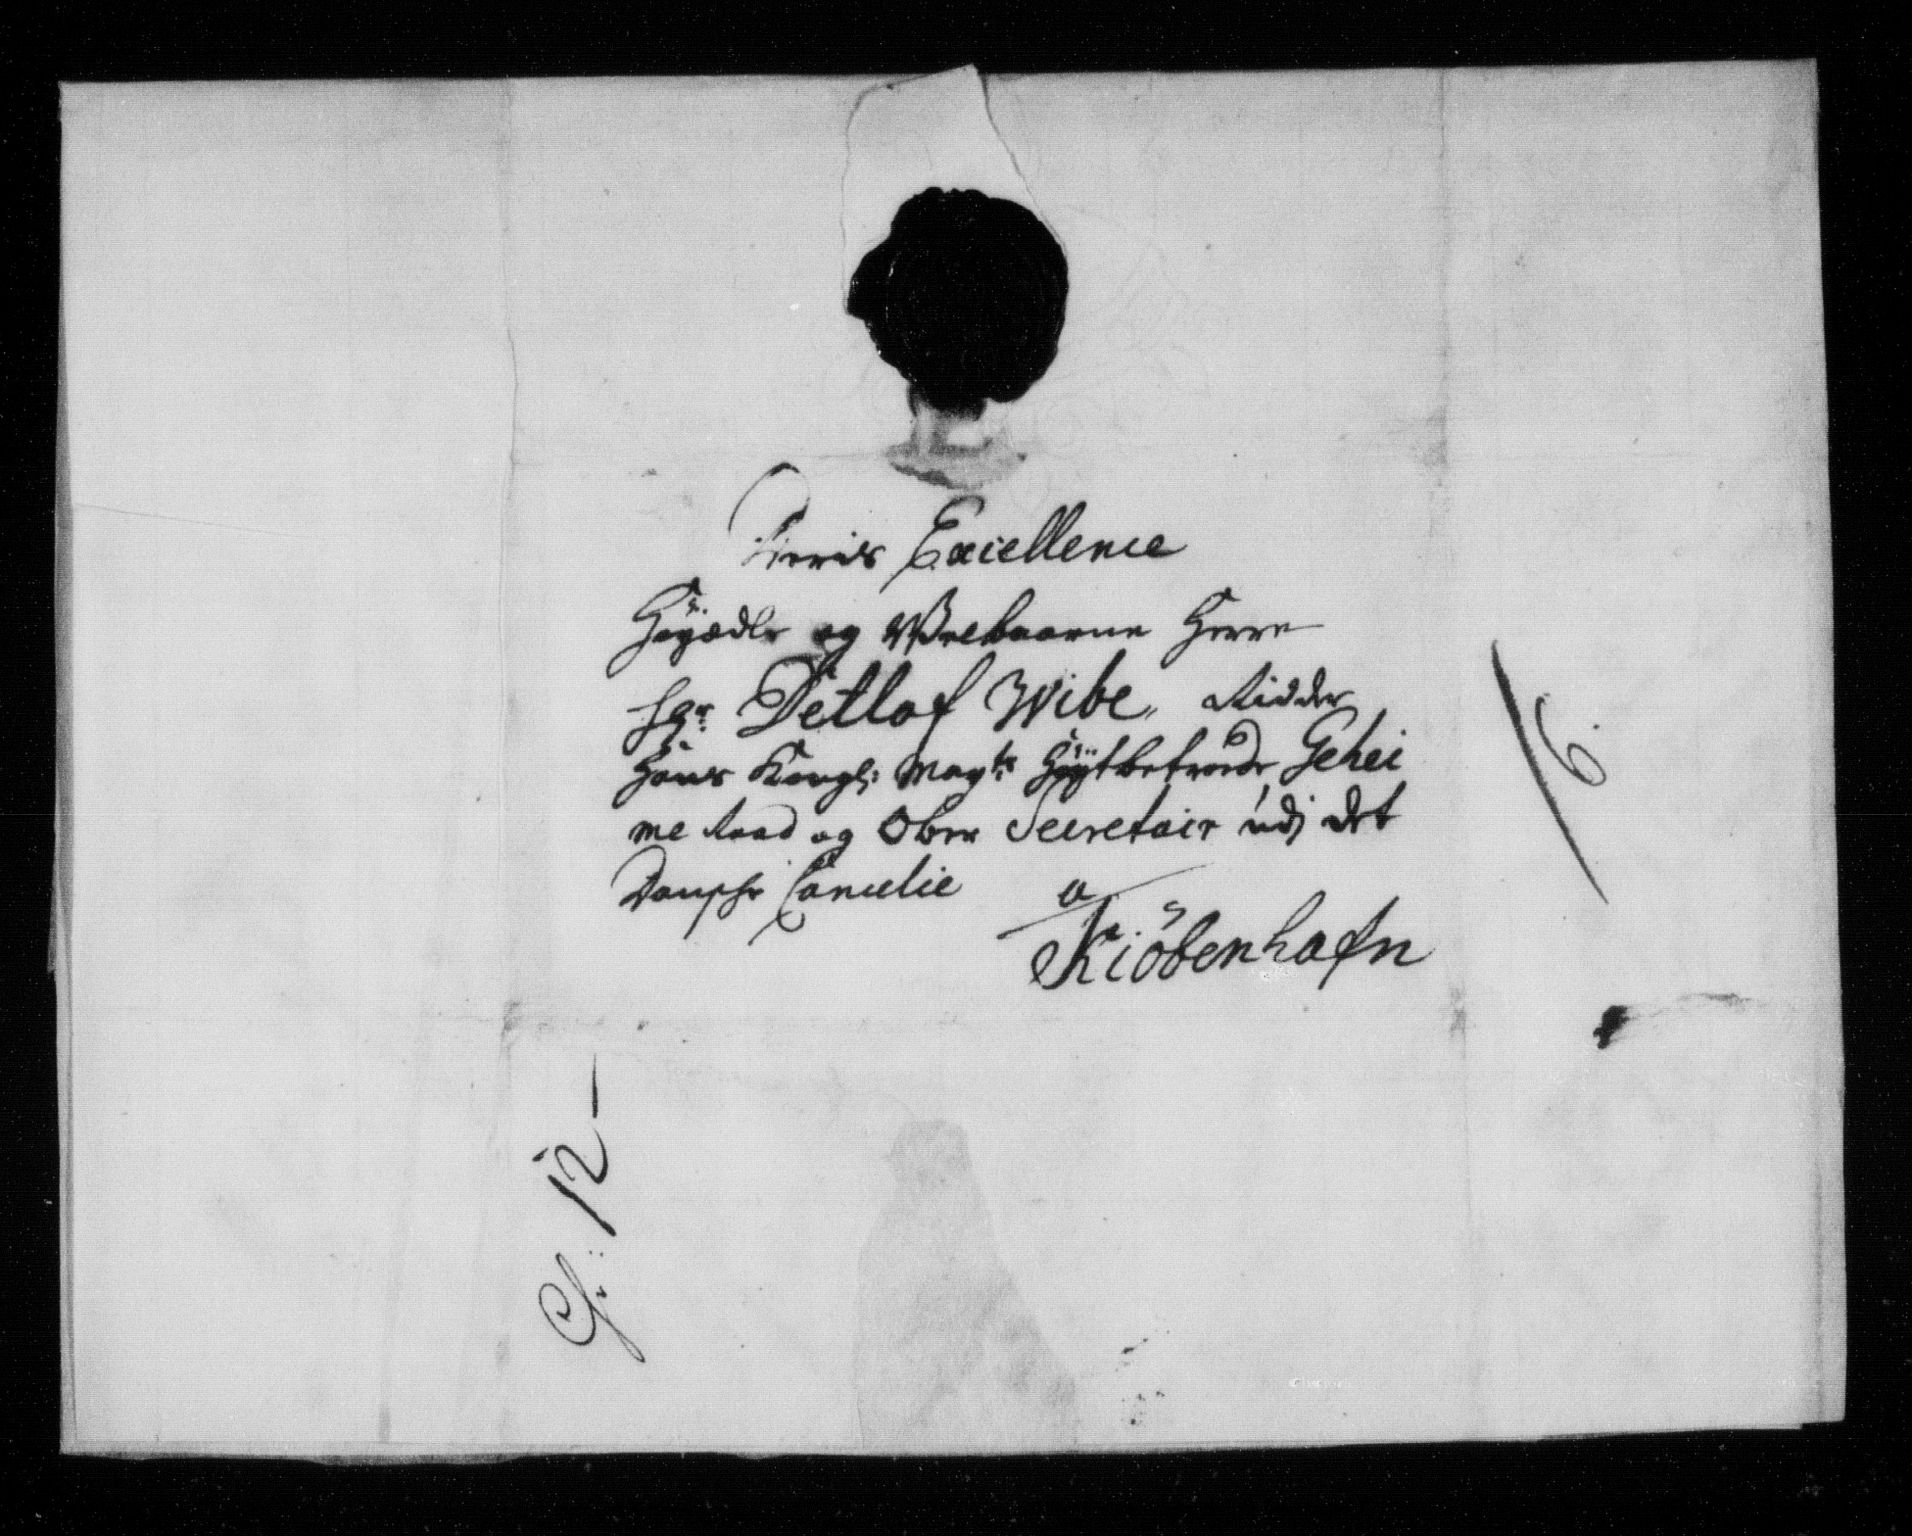 Excellence
Høyædle og Welbaarne Herre
Hr: Detlof Wibe, Ridder
Hans Kongl: Mayts Høytbetroede Gehei
me Raad og Ober Secretair udj det
Danske Cancelie
a
Kiöbenhafn
6.
12